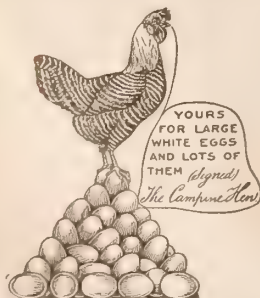 YOURS
FOR LARGE
WHITE EGGS
AND LOTS OF
THEM (Signed)
The Campine Hen